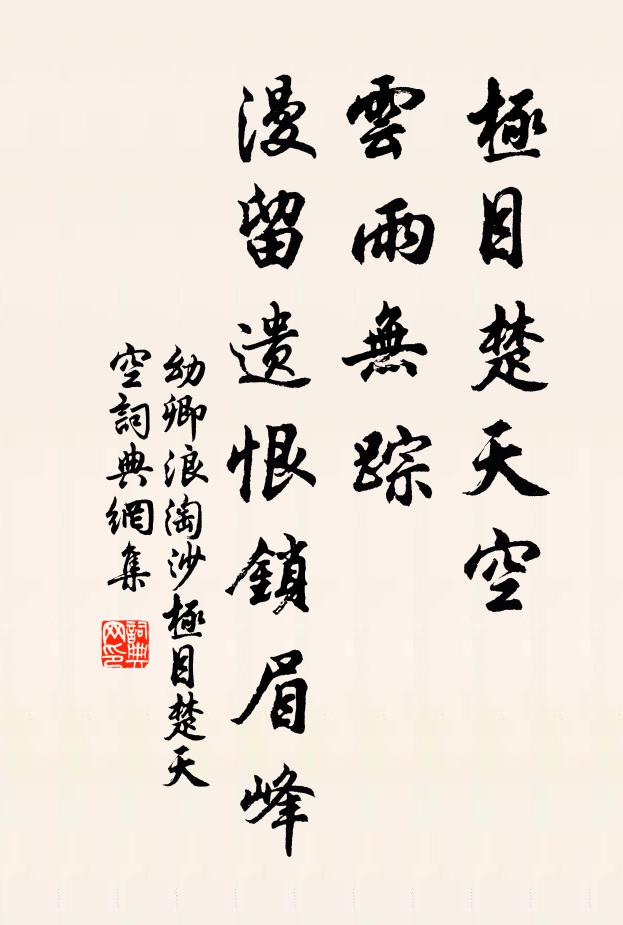 極目楚天空
雲雨無踪
漫留遺恨鎖眉峰
幼卿浪淘沙極目楚天
空詞典網集
詞典
网印